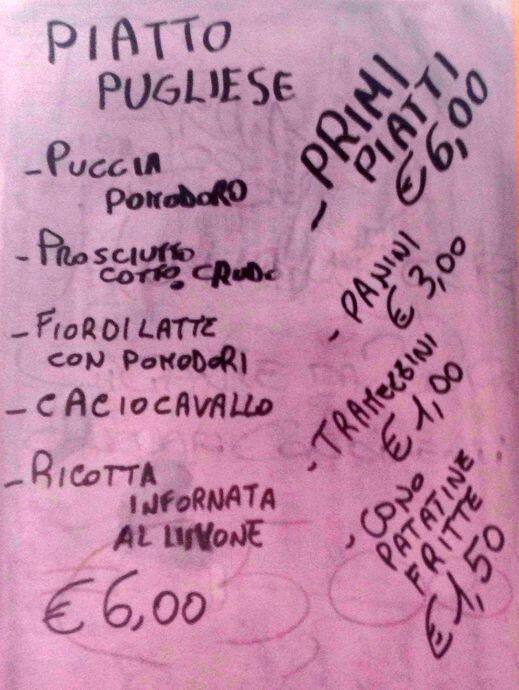 PIATTO
PUGLIESE
- PUCCIA
POMODORO
- PROSCIUTTO
COTTO. CRUDO
- FIORDILATTE
CON POMODORI
- CACIOCAVALLO
- RICOTTA
INFORNATA
AL LIMONE
€ 6,00
- PRIMI
PIATTI
€ 6,00
- PANINI
€ 3,00
- TRAMEZZINI
€ 1,00
- CONO
PATATINE
FRITTE
€ 1,50